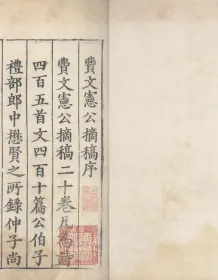 費文憲公摘稿序
費文憲公摘稿二十卷凡為詩
四百五首文四百十篇公伯子尚
禮部郎中懋賢之所錄仲子尚